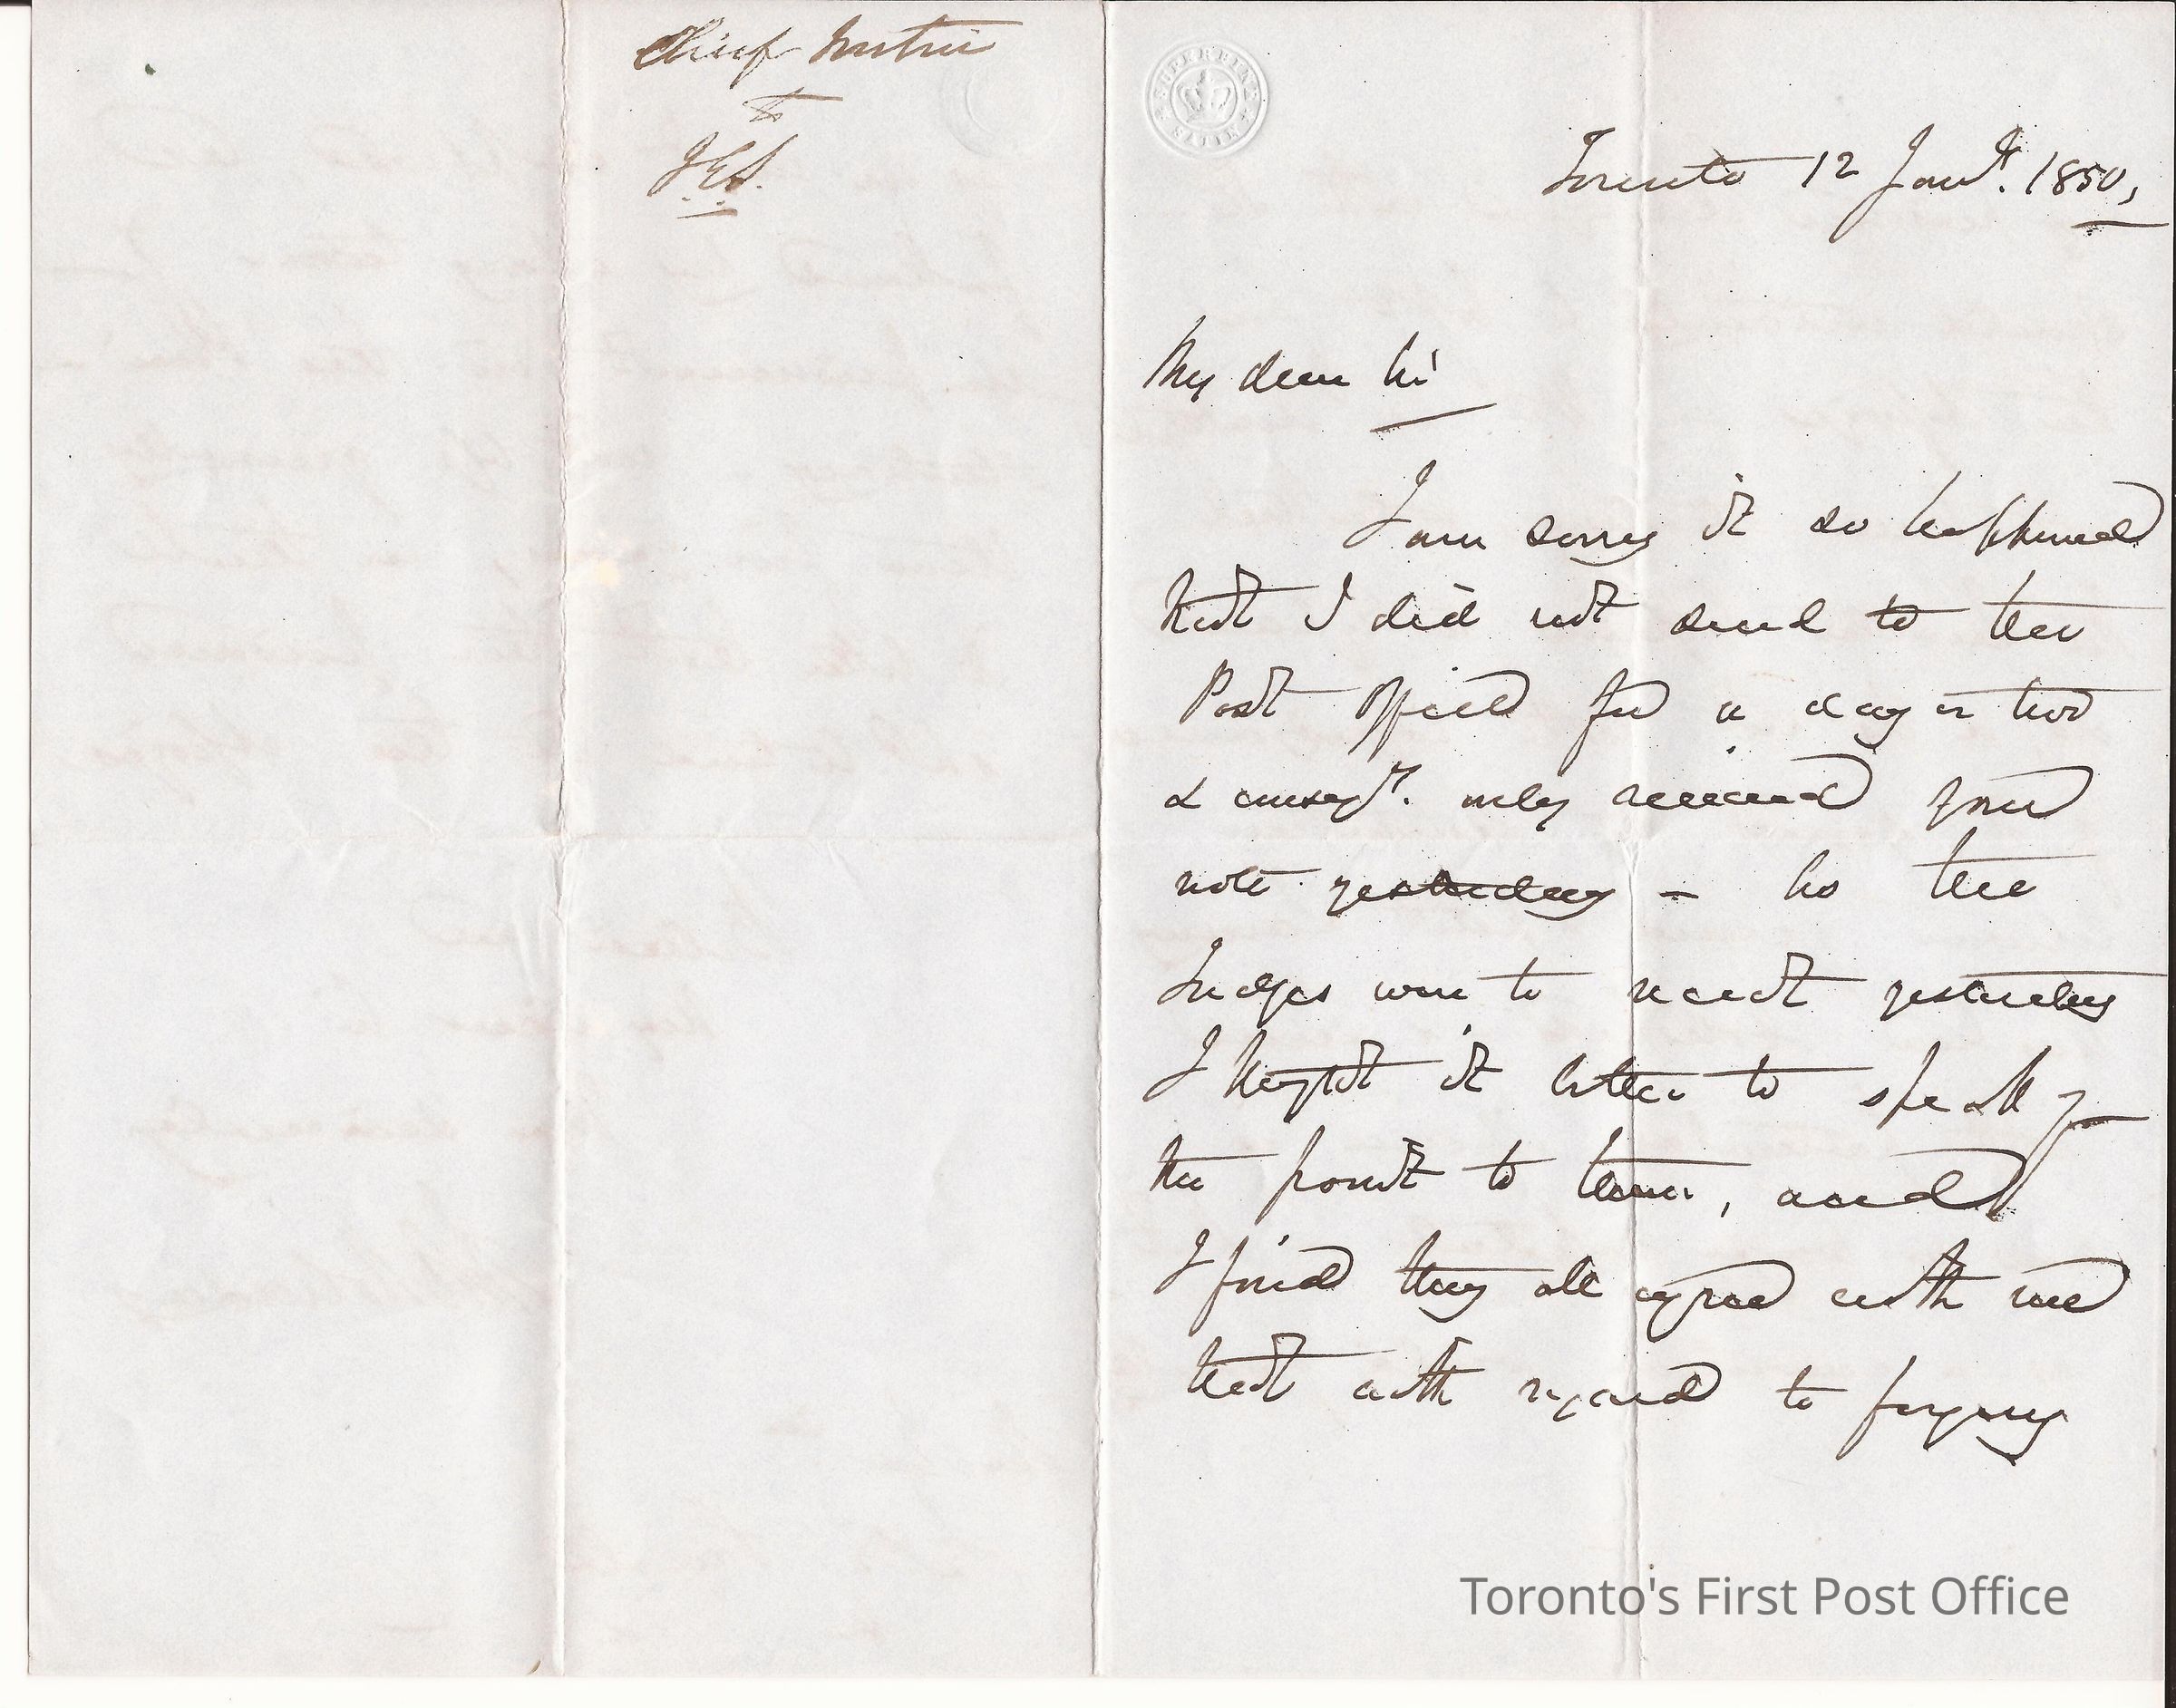 Chief Justice
to
J.E.S.
SUPERFINE
SATIN
Toronto 12 Jany. 1850,
My dear Sir
I am sorry it so happened
that I did not send to the
Post Office for a day or two
& conseqy. only received your
note yesterday – As the
Judges were to meet yesterday
I thought it better to speak of
the point to them, and
I find they all agree with me
that with regard to forgery
Toronto's First Post Office